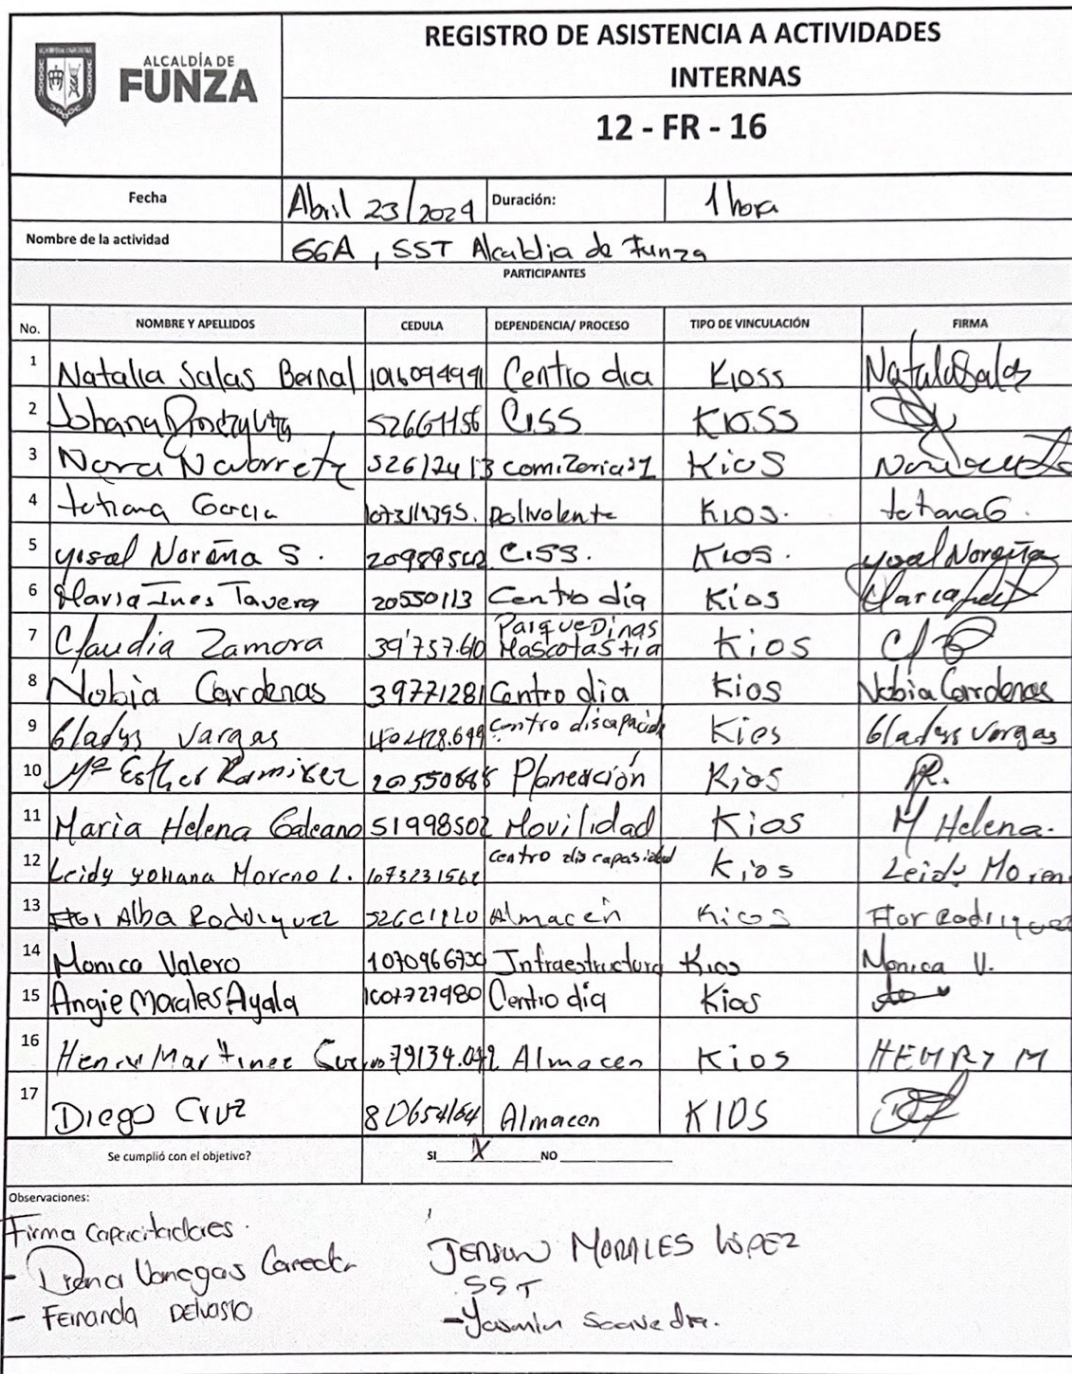 ALCALDÍA DE
FUNZA
REGISTRO DE ASISTENCIA A ACTIVIDADES
INTERNAS
12 - FR - 16
Fecha Abril 23/2024 Duración: 1 hora
Nombre de la actividad SST Alcaldia de Funza
PARTICIPANTES
No. NOMBRE Y APELLIDOS CEDULA DEPENDENCIA/ PROCESO TIPO DE VINCULACIÓN FIRMA
1 Natalia Salas Bernal 1016094991 Centro dia Kioss Natalia Salas
2 Johana 52661156 CISS KIOSS
3 Nora Navarrete 52612413 Kios
4 tatiana Garcia Polivalente KIOS. tatiana G.
5 yisel Noreña S. 20989542 CISS. KIOS. yisel Noreña
6 Maria Ines Tavera 20550113 Centro dia Kios
7 Claudia Zamora 39'757.610 Parque Dinas Mascotas tia Kios
8 Nobia Cardenas 39771281 Centro dia Kios Nobia Cardenas
9 Gladys Vargas Centro discapacid Kios Gladys Vargas
10 Mª Esther Ramirez Planeación Kios
11 Maria Helena Galeano 51998502 Movilidad Kios M Helena.
12 Leidy yohana Moreno L. 1073231562 Centro discapasidad Kios Leidy Moreno
13 Flor Alba Rodriguez Almacen Kios Flor Rodriguez
14 Monica Valero 1070966730 Infraestructura Kios Monica V.
15 Angie Morales Ayala 1007727980 Centro dia Kios
16 Henry Martinez 79134.042 Almacen Kios HENRY M
17 Diego Cruz 80654164 Almacen KIOS
Se cumplió con el objetivo? SI X NO
Observaciones:
Firma Capacitadores. JENSON MORALES LOPEZ
- Diana Vanegas SST
- Fernanda Delvasto - Yasmin Saavedra.